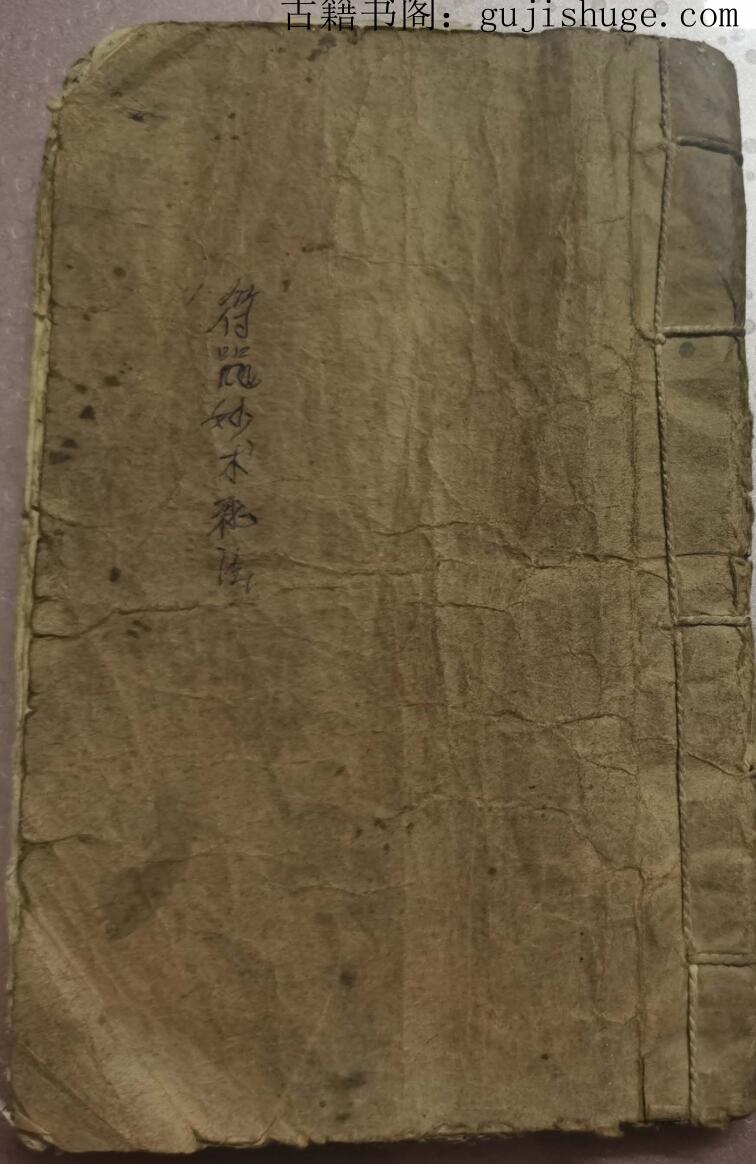 古籍书阁：gujishuge.com
符咒妙术秘法